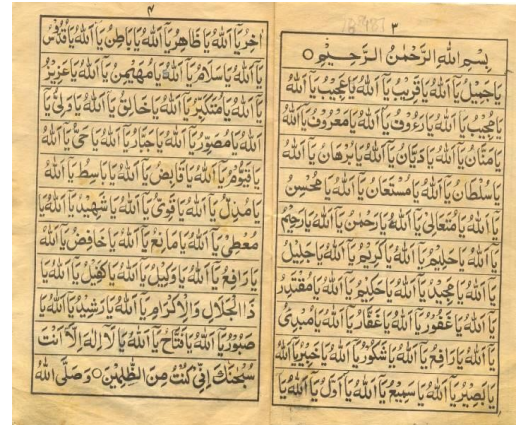 ٣
بِسْمِ اللهِ الرَّحْمٰنِ الرَّحِيْمِ ○
يَاجَمِيْلُ يَآ اَللهُ يَاقَرِيْبُ يَآ اَللهُ يَاعَجِيْبُ يَآ اَللهُ
يَامُجِيْبُ يَآ اَللهُ يَارَءُوْفُ يَآ اَللهُ يَامَعْرُوْفُ يَآ اَللهُ
يَامَنَّانُ يَآ اَللهُ يَادَيَّانُ يَآ اَللهُ يَابُرْهَانُ يَآ اَللهُ
يَاسُلْطَانُ يَآ اَللهُ يَامُسْتَعَانُ يَآ اَللهُ يَامُحْسِنُ
يَآ اَللهُ يَامُتَعَالِىْ يَآ اَللهُ يَارَحْمٰنُ يَآ اَللهُ يَارَحِيْمُ
يَآ اَللهُ يَاحَلِيْمُ يَآ اَللهُ يَاكَرِيْمُ يَآ اَللهُ يَاجَلِيْلُ
يَآ اَللهُ يَامَجِيْدُ يَآ اَللهُ يَاحَكِيْمُ يَآ اَللهُ يَامُقْتَدِرُ
يَآ اَللهُ يَاغَفُوْرُ يَآ اَللهُ يَاغَفَّارُ يَآ اَللهُ يَامُبْدِئُ
يَآ اَللهُ يَارَافِعُ يَآ اَللهُ يَاشَكُوْرُ يَآ اَللهُ يَاخَبِيْرُ يَآ اَللهُ
يَابَصِيْرُ يَآ اَللهُ يَاسَمِيْعُ يَآ اَللهُ يَآ اَوَّلُ يَآ اَللهُ يَآ
٤
اٰخِرُ يَآ اَللهُ يَاظَاهِرُ يَآ اَللهُ يَابَاطِنُ يَآ اَللهُ يَاقُدُّوْسُ
يَآ اَللهُ يَاسَلَامُ يَآ اَللهُ يَامُهَيْمِنُ يَآ اَللهُ يَاعَزِيْزُ
يَآ اَللهُ يَامُتَكَبِّرُ يَآ اَللهُ يَاخَالِقُ يَآ اَللهُ يَاوَلِىُّ يَآ
اَللهُ يَامُصَوِّرُ يَآ اَللهُ يَاجَبَّارُ يَآ اَللهُ يَاحَىُّ يَآ اَللهُ
يَاقَيُّوْمُ يَآ اَللهُ يَاقَابِضُ يَآ اَللهُ يَابَاسِطُ يَآ اَللهُ
يَامُذِلُّ يَآ اَللهُ يَاقَوِىُّ يَآ اَللهُ يَاشَهِيْدُ يَآ اَللهُ يَا
مُعْطِىْ يَآ اَللهُ يَامَانِعُ يَآ اَللهُ يَاخَافِضُ يَآ اَللهُ
يَارَافِعُ يَآ اَللهُ يَاوَكِيْلُ يَآ اَللهُ يَاكَفِيْلُ يَآ اَللهُ يَا
ذَاالْجَلَالِ وَالْاِكْرَامِ يَآ اَللهُ يَارَشِيْدُ يَآ اَللهُ يَا
صَبُوْرُ يَآ اَللهُ يَافَتَّاحُ يَآ اَللهُ يَا لَآ اِلٰهَ اِلَّآ اَنْتَ
سُبْحٰنَكَ اِنِّىْ كُنْتُ مِنَ الظّٰلِمِيْنَ ○ وَصَلَّى اللهُ